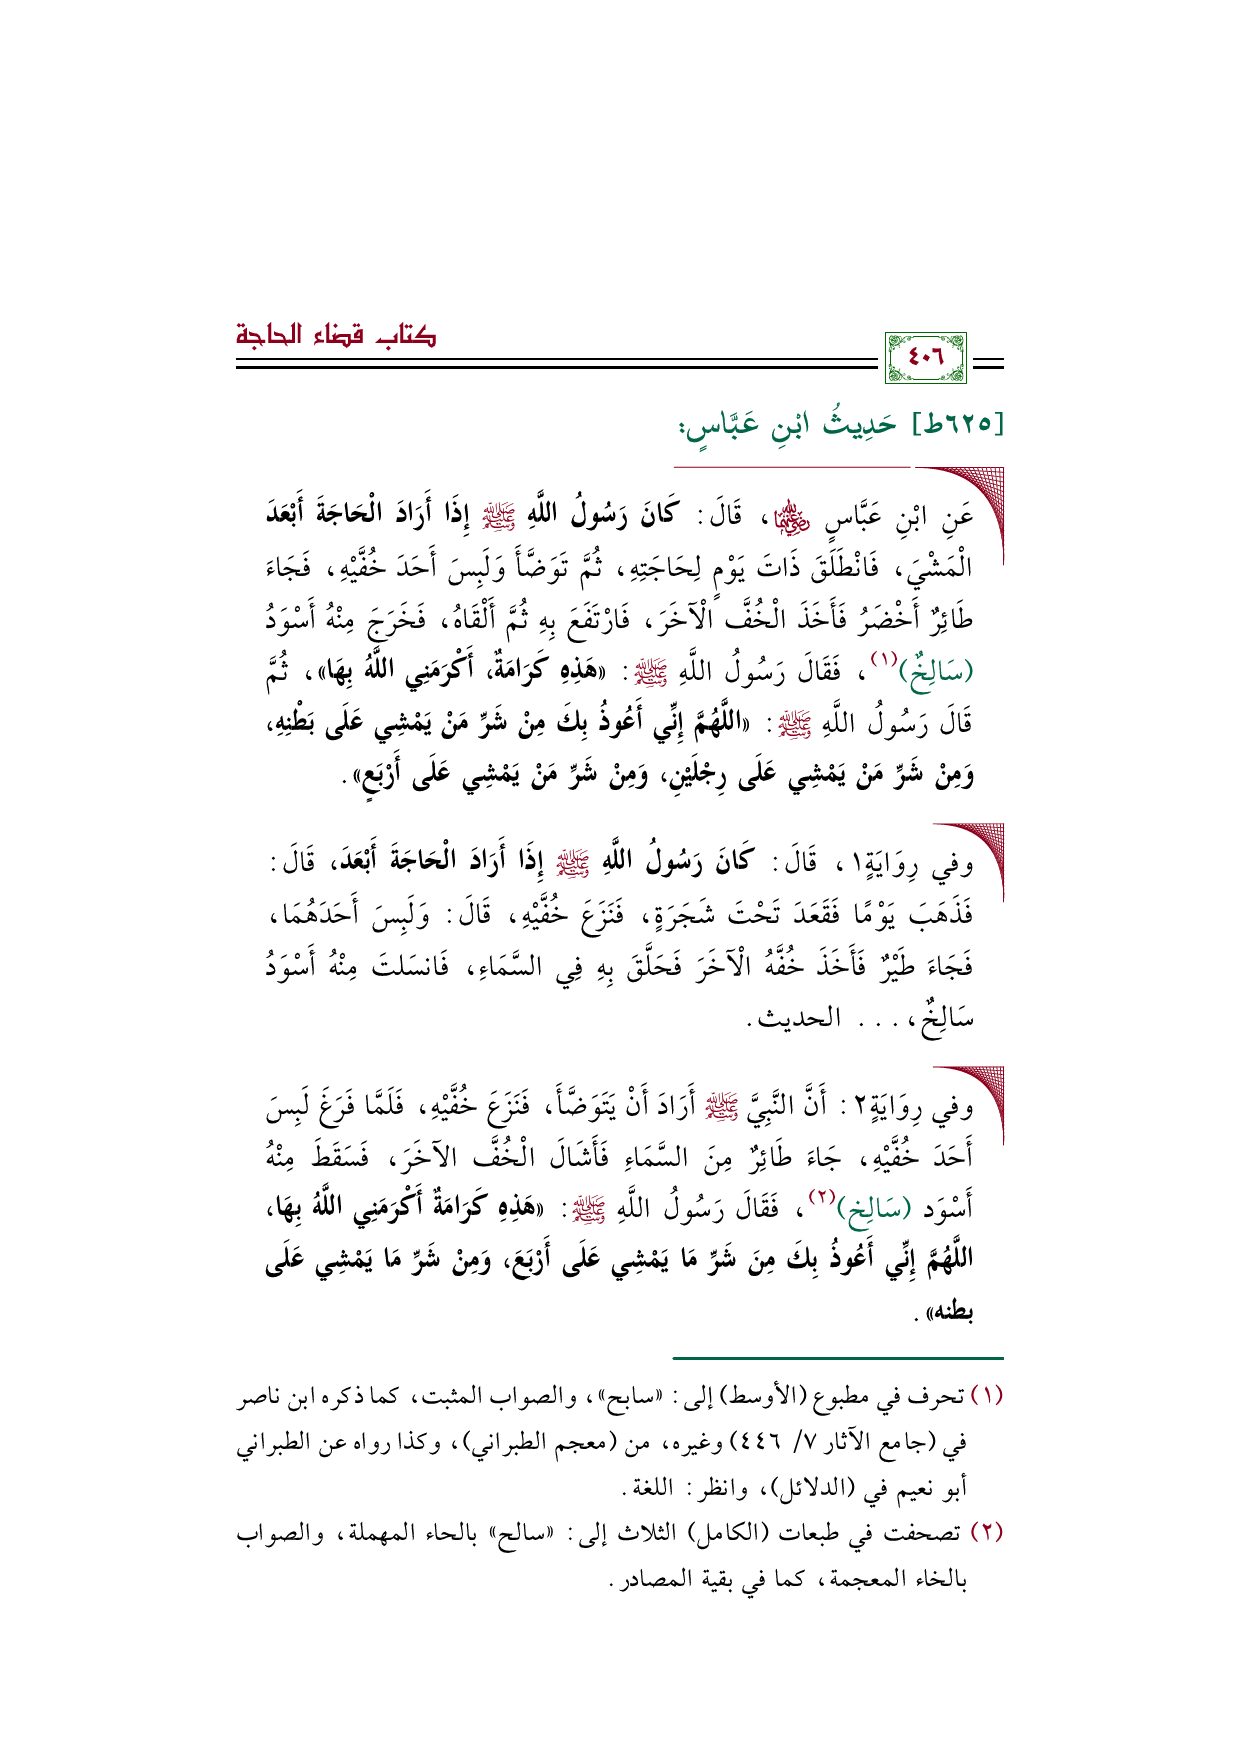 كتاب قضاء الحاجة
٤٠٦
[٦٢٥ط] حَدِيثُ ابْنِ عَبَّاسٍ:
عَنِ ابْنِ عَبَّاسٍ ﵄، قَالَ: كَانَ رَسُولُ اللَّهِ ﷺ إِذَا أَرَادَ الْحَاجَةَ أَبْعَدَ
الْمَشْيَ، فَانْطَلَقَ ذَاتَ يَوْمٍ لِحَاجَتِهِ، ثُمَّ تَوَضَّأَ وَلَبِسَ أَحَدَ خُفَّيْهِ، فَجَاءَ
طَائِرٌ أَخْضَرُ فَأَخَذَ الْخُفَّ الْآخَرَ، فَارْتَفَعَ بِهِ ثُمَّ أَلْقَاهُ، فَخَرَجَ مِنْهُ أَسْوَدُ
(سَالِخٌ)(١)، فَقَالَ رَسُولُ اللَّهِ ﷺ: «هَذِهِ كَرَامَةٌ، أَكْرَمَنِي اللَّهُ بِهَا»، ثُمَّ
قَالَ رَسُولُ اللَّهِ ﷺ: «اللَّهُمَّ إِنِّي أَعُوذُ بِكَ مِنْ شَرِّ مَنْ يَمْشِي عَلَى بَطْنِهِ،
وَمِنْ شَرِّ مَنْ يَمْشِي عَلَى رِجْلَيْنِ، وَمِنْ شَرِّ مَنْ يَمْشِي عَلَى أَرْبَعٍ».
وفي رِوَايَةٍ١، قَالَ: كَانَ رَسُولُ اللَّهِ ﷺ إِذَا أَرَادَ الْحَاجَةَ أَبْعَدَ، قَالَ:
فَذَهَبَ يَوْمًا فَقَعَدَ تَحْتَ شَجَرَةٍ، فَنَزَعَ خُفَّيْهِ، قَالَ: وَلَبِسَ أَحَدَهُمَا،
فَجَاءَ طَيْرٌ فَأَخَذَ خُفَّهُ الْآخَرَ فَحَلَّقَ بِهِ فِي السَّمَاءِ، فَانسَلتَ مِنْهُ أَسْوَدُ
سَالِخٌ، ... الحديث.
وفي رِوَايَةٍ٢: أَنَّ النَّبِيَّ ﷺ أَرَادَ أَنْ يَتَوَضَّأَ، فَنَزَعَ خُفَّيْهِ، فَلَمَّا فَرَغَ لَبِسَ
أَحَدَ خُفَّيْهِ، جَاءَ طَائِرٌ مِنَ السَّمَاءِ فَأَشَالَ الْخُفَّ الآخَرَ، فَسَقَطَ مِنْهُ
أَسْوَد (سَالِخ)(٢)، فَقَالَ رَسُولُ اللَّهِ ﷺ: «هَذِهِ كَرَامَةٌ أَكْرَمَنِي اللَّهُ بِهَا،
اللَّهُمَّ إِنِّي أَعُوذُ بِكَ مِنَ شَرِّ مَا يَمْشِي عَلَى أَرْبَعَ، وَمِنْ شَرِّ مَا يَمْشِي عَلَى
بطنه».
(١) تحرف في مطبوع (الأوسط) إلى: «سابح»، والصواب المثبت، كما ذكره ابن ناصر
في (جامع الآثار ٧/ ٤٤٦) وغيره، من (معجم الطبراني)، وكذا رواه عن الطبراني
أبو نعيم في (الدلائل)، وانظر: اللغة.
(٢) تصحفت في طبعات (الكامل) الثلاث إلى: «سالح» بالحاء المهملة، والصواب
بالخاء المعجمة، كما في بقية المصادر.